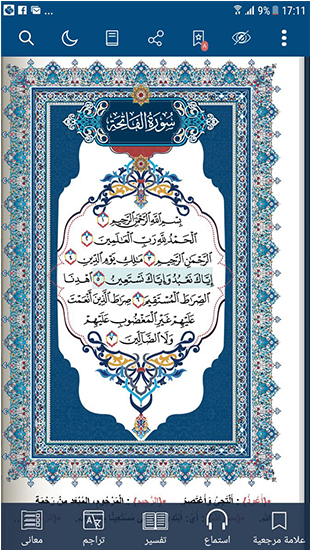 9% 17:11
سُورَةُ الْفَاتِحَةِ
بِسْمِ اللَّهِ الرَّحْمَٰنِ الرَّحِيمِ ١
الْحَمْدُ لِلَّهِ رَبِّ الْعَالَمِينَ ٢
الرَّحْمَٰنِ الرَّحِيمِ ٣ مَالِكِ يَوْمِ الدِّينِ ٤
إِيَّاكَ نَعْبُدُ وَإِيَّاكَ نَسْتَعِينُ ٥ اهْدِنَا
الصِّرَاطَ الْمُسْتَقِيمَ ٦ صِرَاطَ الَّذِينَ أَنْعَمْتَ
عَلَيْهِمْ غَيْرِ الْمَغْضُوبِ عَلَيْهِمْ
وَلَا الضَّالِّينَ ٧
علامة مرجعية
استماع
تفسير
تراجم
معاني